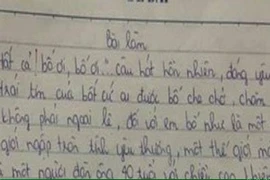 Bài làm
tất cả! bố ơi, bố ơi... câu hát hồn nhiên, đáng yêu
trái tim của bất cứ ai được bố che chở, chăm
không phải ngoại lệ, đối với em bố như là một
giới ngập tràn tình yêu thương, một thế giới mà
là một người đàn ông 40 tuổi với chiều cao 1